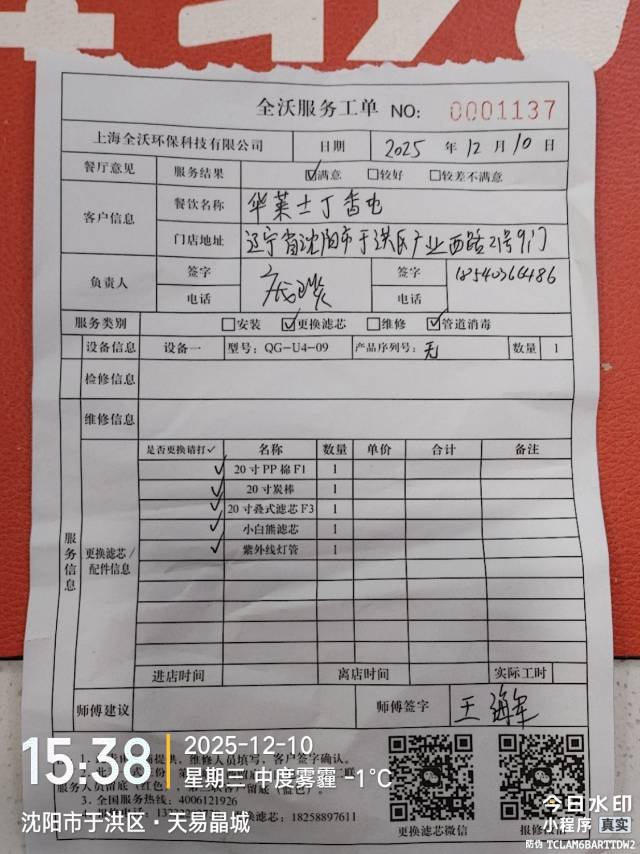 全沃服务工单 NO: 0001137
上海全沃环保科技有限公司 日期 2025 年 12 月 10 日
餐厅意见 服务结果 ☑满意 □较好 □较差不满意
客户信息 餐饮名称 华莱士丁香屯
门店地址 辽宁省沈阳市于洪区产业西路21号9门
负责人 签字 签字 18540366486
电话 电话
服务类别 □安装 ☑更换滤芯 □维修 ☑管道消毒
设备信息 设备一 型号: QG-U4-09 产品序列号: 无 数量 1
检修信息
维修信息
服务信息
更换滤芯/配件信息
是否更换请打✓ 名称 数量 单价 合计 备注
✓ 20寸PP棉F1 1
✓ 20寸炭棒 1
✓ 20寸叠式滤芯F3 1
✓ 小白熊滤芯 1
✓ 紫外线灯管 1
进店时间 离店时间 实际工时
师傅建议 师傅签字 王海军
提供, 维修人员填写, 客户签字确认。
服务人员留底(红色) 留底(蓝色)。
3. 全国服务热线: 4006121926
18258897611
更换滤芯微信 报修微信
15:38
2025-12-10
星期三 中度雾霾 -1°C
沈阳市于洪区·天易晶城
今日水印
小程序 真实
防伪 TCLAM6BARTTDW2